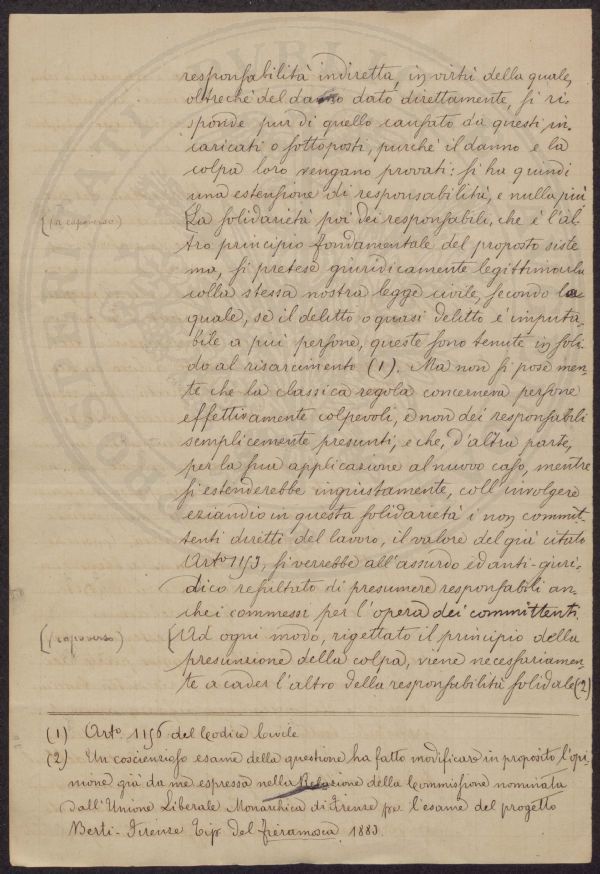 responsabilità indiretta, in virtù della quale,
oltreché del danno dato direttamente, si ri-
sponde pur di quello causato da questi, in-
caricati o sottoposti, purché il danno e la
colpa loro vengano provati: si ha quindi
una estensione di responsabilità, e nulla più
(a capoverso) [La solidarietà poi dei responsabili, che è l'al-
tro principio fondamentale del proposto siste
ma, si pretese giuridicamente legittimarla
colla stessa nostra legge civile, secondo la
quale, se il delitto o quasi delitto è imputa-
bile a più persone, queste sono tenute in soli-
do al risarcimento (1). Ma non si pose men-
te che la classica regola concerneva persone
effettivamente colpevoli, e non dei responsabili
semplicemente presunti, e che, d'altra parte,
per la sua applicazione al nuovo caso, mentre
si estenderebbe ingiustamente, coll'involgere
eziandio in questa solidarietà i non commit-
tenti diretti del lavoro, il valore del già citato
Arto 1153, si verrebbe all'assurdo ed anti-giuri-
dico resultato di presumere responsabili an-
che i commessi per l'opera dei committenti.
(capoverso) [Ad ogni modo, rigettato il principio della
presunzione della colpa, viene necessariamen-
te a cader l'altro della responsabilità solidale (2)
(1) Arto 1156 del Codice Civile
(2) Un coscienzioso esame della questione ha fatto modificare in proposito, l'opi-
nione già da me espressa nella Relazione della Commissione nominata
dall'Unione Liberale Monarchica di Firenze per l'esame del progetto
Berti - Firenze Tip. del Fieramosca 1883